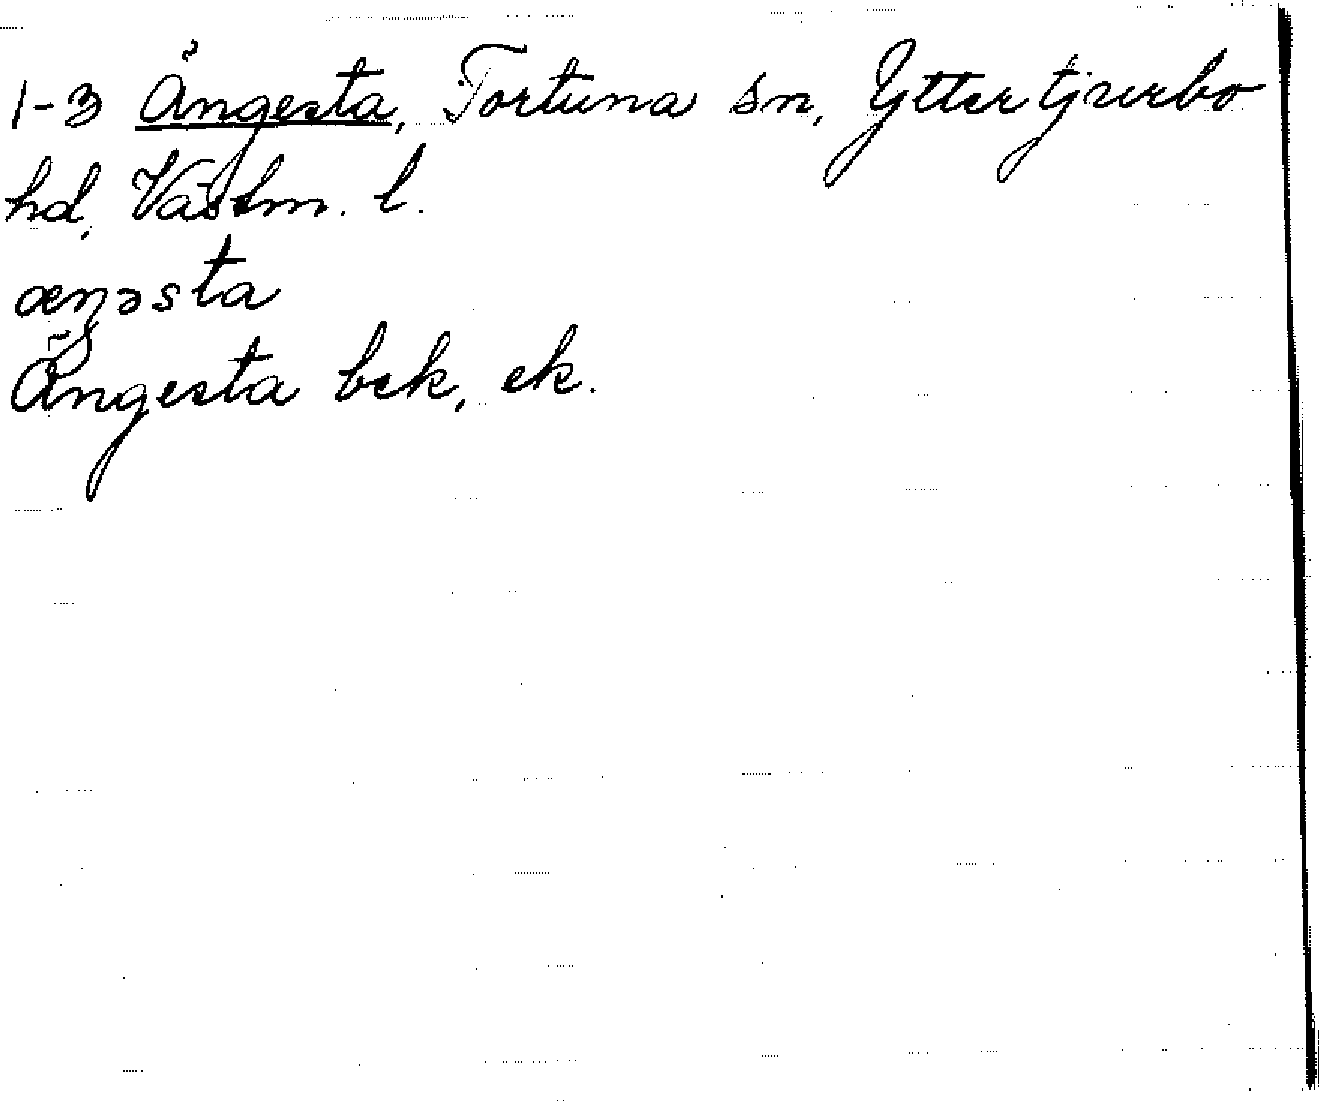 1-3 Ängesta, Tortuna sn, Yttertjurbo
hd, Västm. l.
æŋəsta
Ängesta bek, ek.